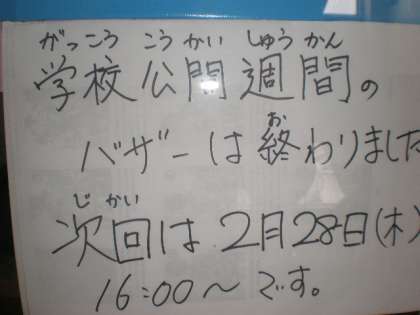 がっこう こうかい しゅうかん
学校公開週間の
お
バザーは終わりました
じかい
次回は2月28日(木)
16:00〜です。